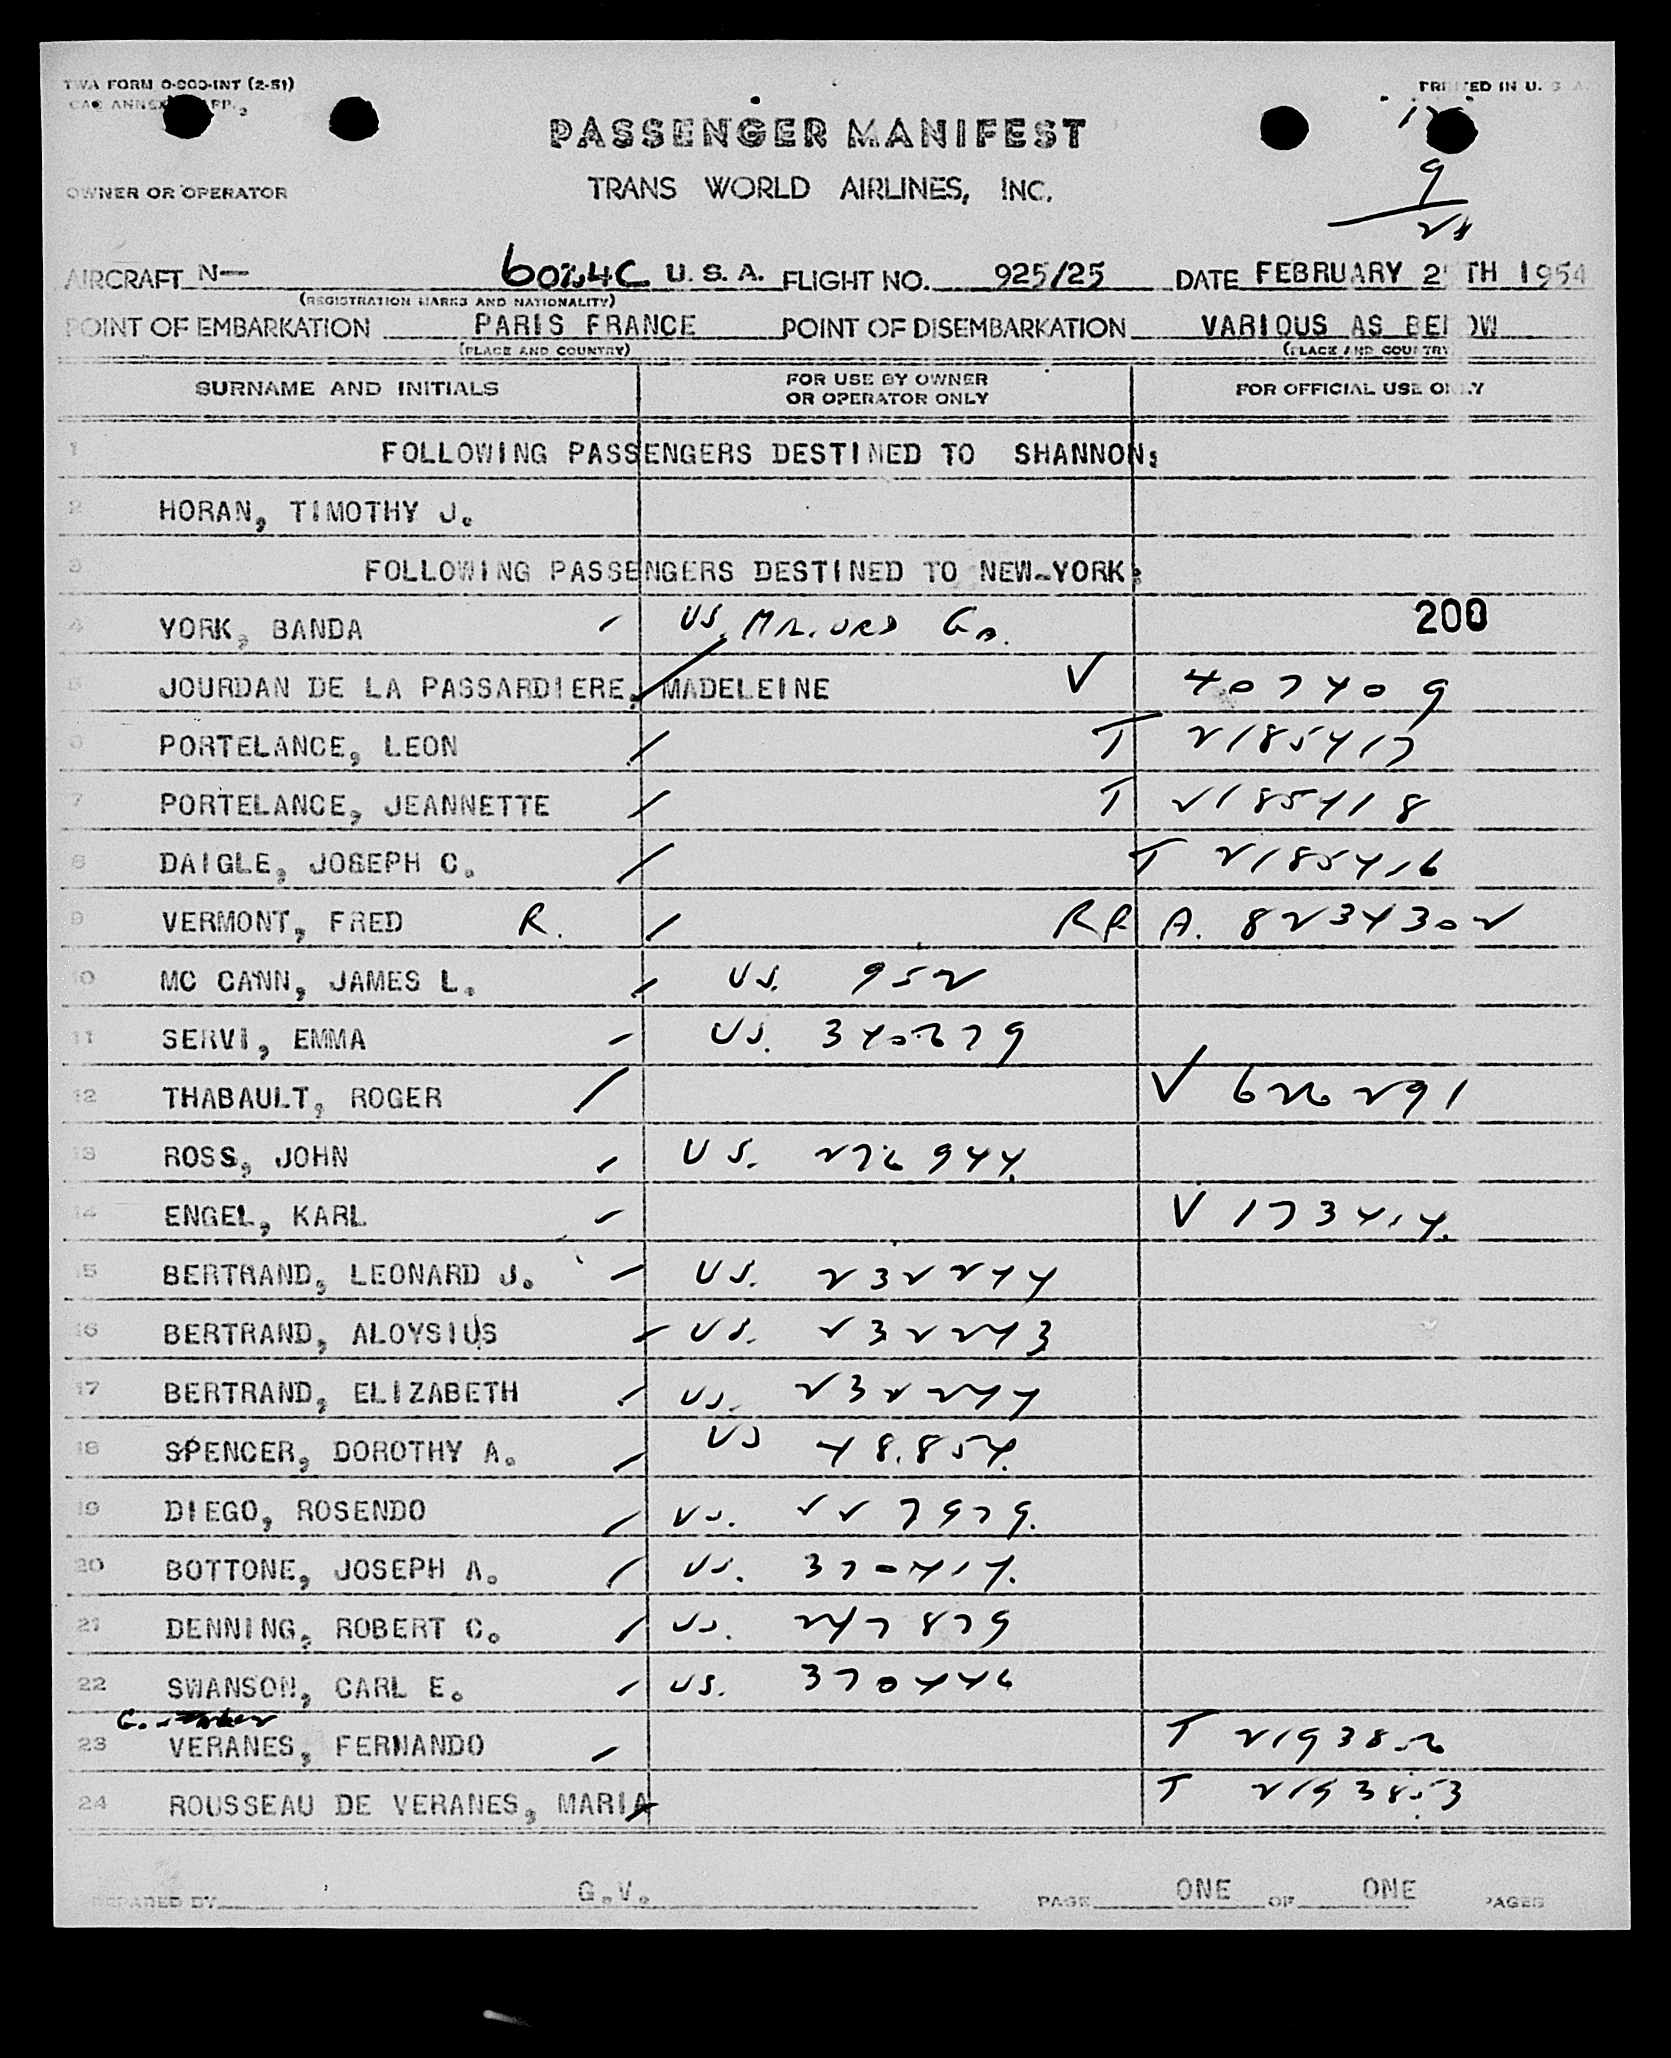 TWA FORM O-900-INT (2-51)
PRINTED IN U. S. A.
PASSENGER MANIFEST
9
OWNER OR OPERATOR
TRANS WORLD AIRLINES, INC.
AIRCRAFT N— C U. S. A. FLIGHT NO. 925/25 DATE FEBRUARY TH 1954
(REGISTRATION MARKS AND NATIONALITY)
POINT OF EMBARKATION PARIS FRANCE POINT OF DISEMBARKATION VARIOUS AS BELOW
(PLACE AND COUNTRY) (PLACE AND COUNTRY)
SURNAME AND INITIALS FOR USE BY OWNER OR OPERATOR ONLY FOR OFFICIAL USE ONLY
1 FOLLOWING PASSENGERS DESTINED TO SHANNON:
2 HORAN, TIMOTHY J.
3 FOLLOWING PASSENGERS DESTINED TO NEW-YORK:
4 YORK, BANDA US. 200
5 JOURDAN DE LA PASSARDIERE, MADELEINE V 407409
6 PORTELANCE, LEON T 2185417
7 PORTELANCE, JEANNETTE T 2185418
8 DAIGLE, JOSEPH C. T 2185416
9 VERMONT, FRED R. RP A. 8234302
10 MC CANN, JAMES L. US. 952
11 SERVI, EMMA US. 340279
12 THABAULT, ROGER V 626291
13 ROSS, JOHN US. 276944
14 ENGEL, KARL V 173414
15 BERTRAND, LEONARD J. US. 232244
16 BERTRAND, ALOYSIUS US. 232243
17 BERTRAND, ELIZABETH US. 232244
18 SPENCER, DOROTHY A. US 48854
19 DIEGO, ROSENDO US. 227979
20 BOTTONE, JOSEPH A. US. 370414
21 DENNING, ROBERT C. US. 247879
22 SWANSON, CARL E. US. 370446
23 VERANES, FERNANDO T 2193852
24 ROUSSEAU DE VERANES, MARIA T 2193853
PREPARED BY G.V. PAGE ONE OF ONE PAGES